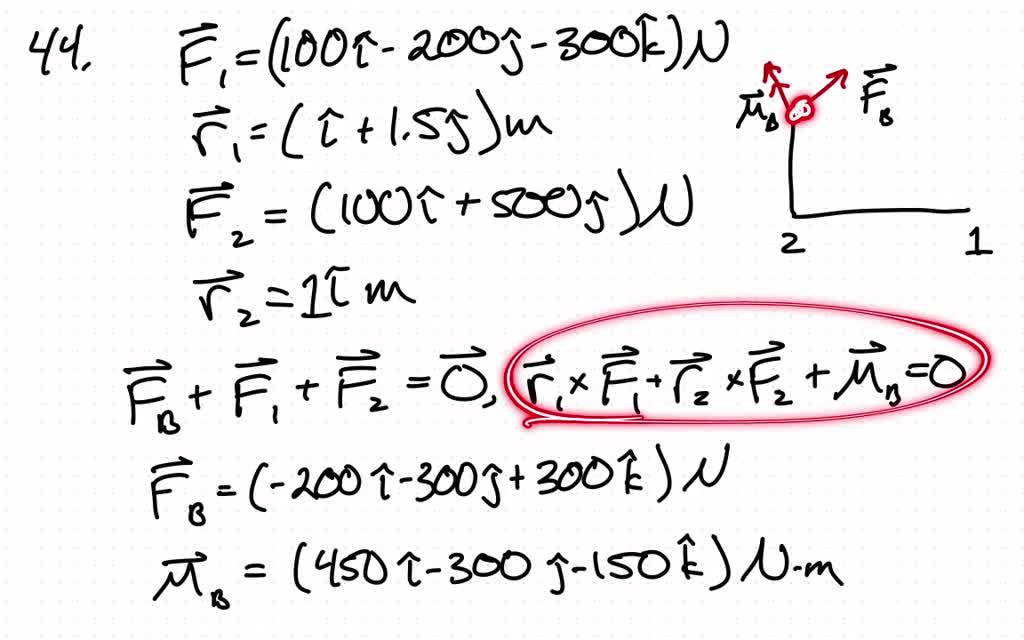 44. F⃗₁ = (100î - 200ĵ - 300k̂) N
r⃗₁ = (î + 1.5ĵ) m
F⃗₂ = (100î + 500ĵ) N
r⃗₂ = 1î m
M⃗_B F⃗_B
2 1
F⃗_B + F⃗₁ + F⃗₂ = 0⃗, r⃗₁ × F⃗₁ + r⃗₂ × F⃗₂ + M⃗_B = 0
F⃗_B = (-200î - 300ĵ + 300k̂) N
M⃗_B = (450î - 300ĵ - 150k̂) N·m